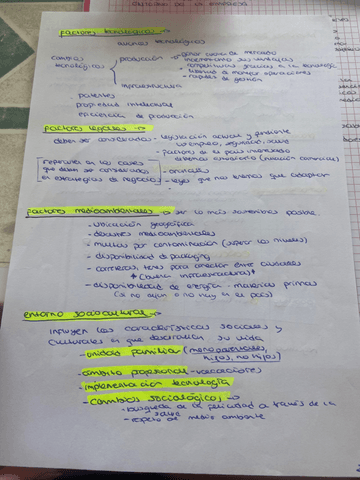 factores tecnológicos →
avances tecnológicos
cambios tecnológicos
producción → ganar cuota de mercado
incrementar sus ventajas
competitivas gracias a la tecnología
rapidez de gestión
infraestructura
patentes
propiedad intelectual
eficiencia de producción
factores legales →
deben ser considerados - legislación actual y pendiente
empleo, seguridad, salud
- factores de el país interesado
- aranceles
- leyes que no tenemos que adaptar
repercuten en las cosas
que deben ser consideradas
en estrategias de negocios
factores medioambientales → ser lo más sostenibles posible
- ubicación geográfica
- desastres medioambientales
- multas por contaminación (superar los niveles)
- disponibilidad de packaging
- carreteras, trenes para conexión entre ciudades
* (buena infraestructura) *
- disponibilidad de energía - materias primas
(si no hay en el país)
entorno sociocultural →
influyen las características sociales y
culturales en que desarrollan su vida
- unidad familiar (monoparentales,
hijos, no hijos)
- ámbito profesional - vacaciones
implementación tecnología
- cambios sociológicos →
- búsqueda de la felicidad a través de la
salud
- respeto de medio ambiente